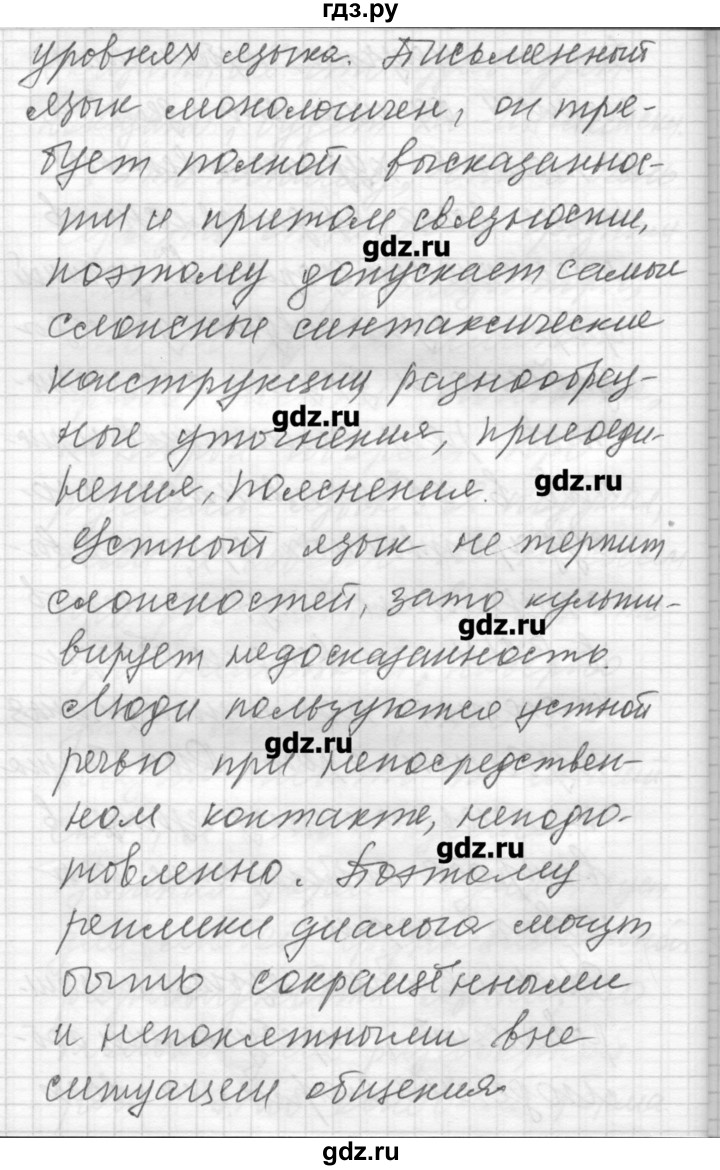 гдз.ру
уровнях языка. Письменный
язык монологичен, он тре-
бует полной высказаннос-
ти и притом связности,
gdz.ru
поэтому допускает самые
сложные синтаксические
конструкции разнообраз-
gdz.ru
ные уточнения, присоеди-
нения, пояснения.
gdz.ru
Устный язык не терпит
сложностей, зато культи-
gdz.ru
вирует недосказанность.
Люди пользуются устной
gdz.ru
речью при непосредствен-
ном контакте, неподго-
gdz.ru
товленно. Поэтому
реплики диалога могут
быть сокращёнными
и непонятными вне
ситуации общения.
gdz.ru